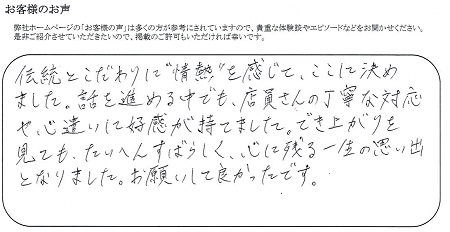 お客様のお声
弊社ホームページの「お客様の声」は多くの方が参考にされていますので、貴重な体験談やエピソードなどをお聞かせください。
是非ご紹介させていただきたいので、掲載のご許可もいただければ幸いです。
伝統とこだわりに“情熱”を感じて、ここに決め
ました。話を進める中でも、店員さんの丁寧な対応
や、心遣いに好感が持てました。でき上がりを
見ても、たいへんすばらしく、心に残る一生の思い出
となりました。お願いして良かったです。